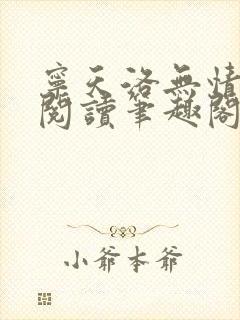 寧天洛無情
閱讀筆趣閣
小爺本爺